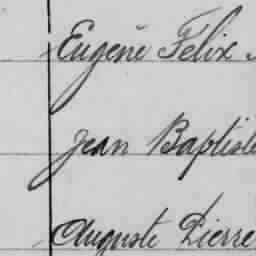 Eugène Félix
Jean Baptiste
Auguste Pierre